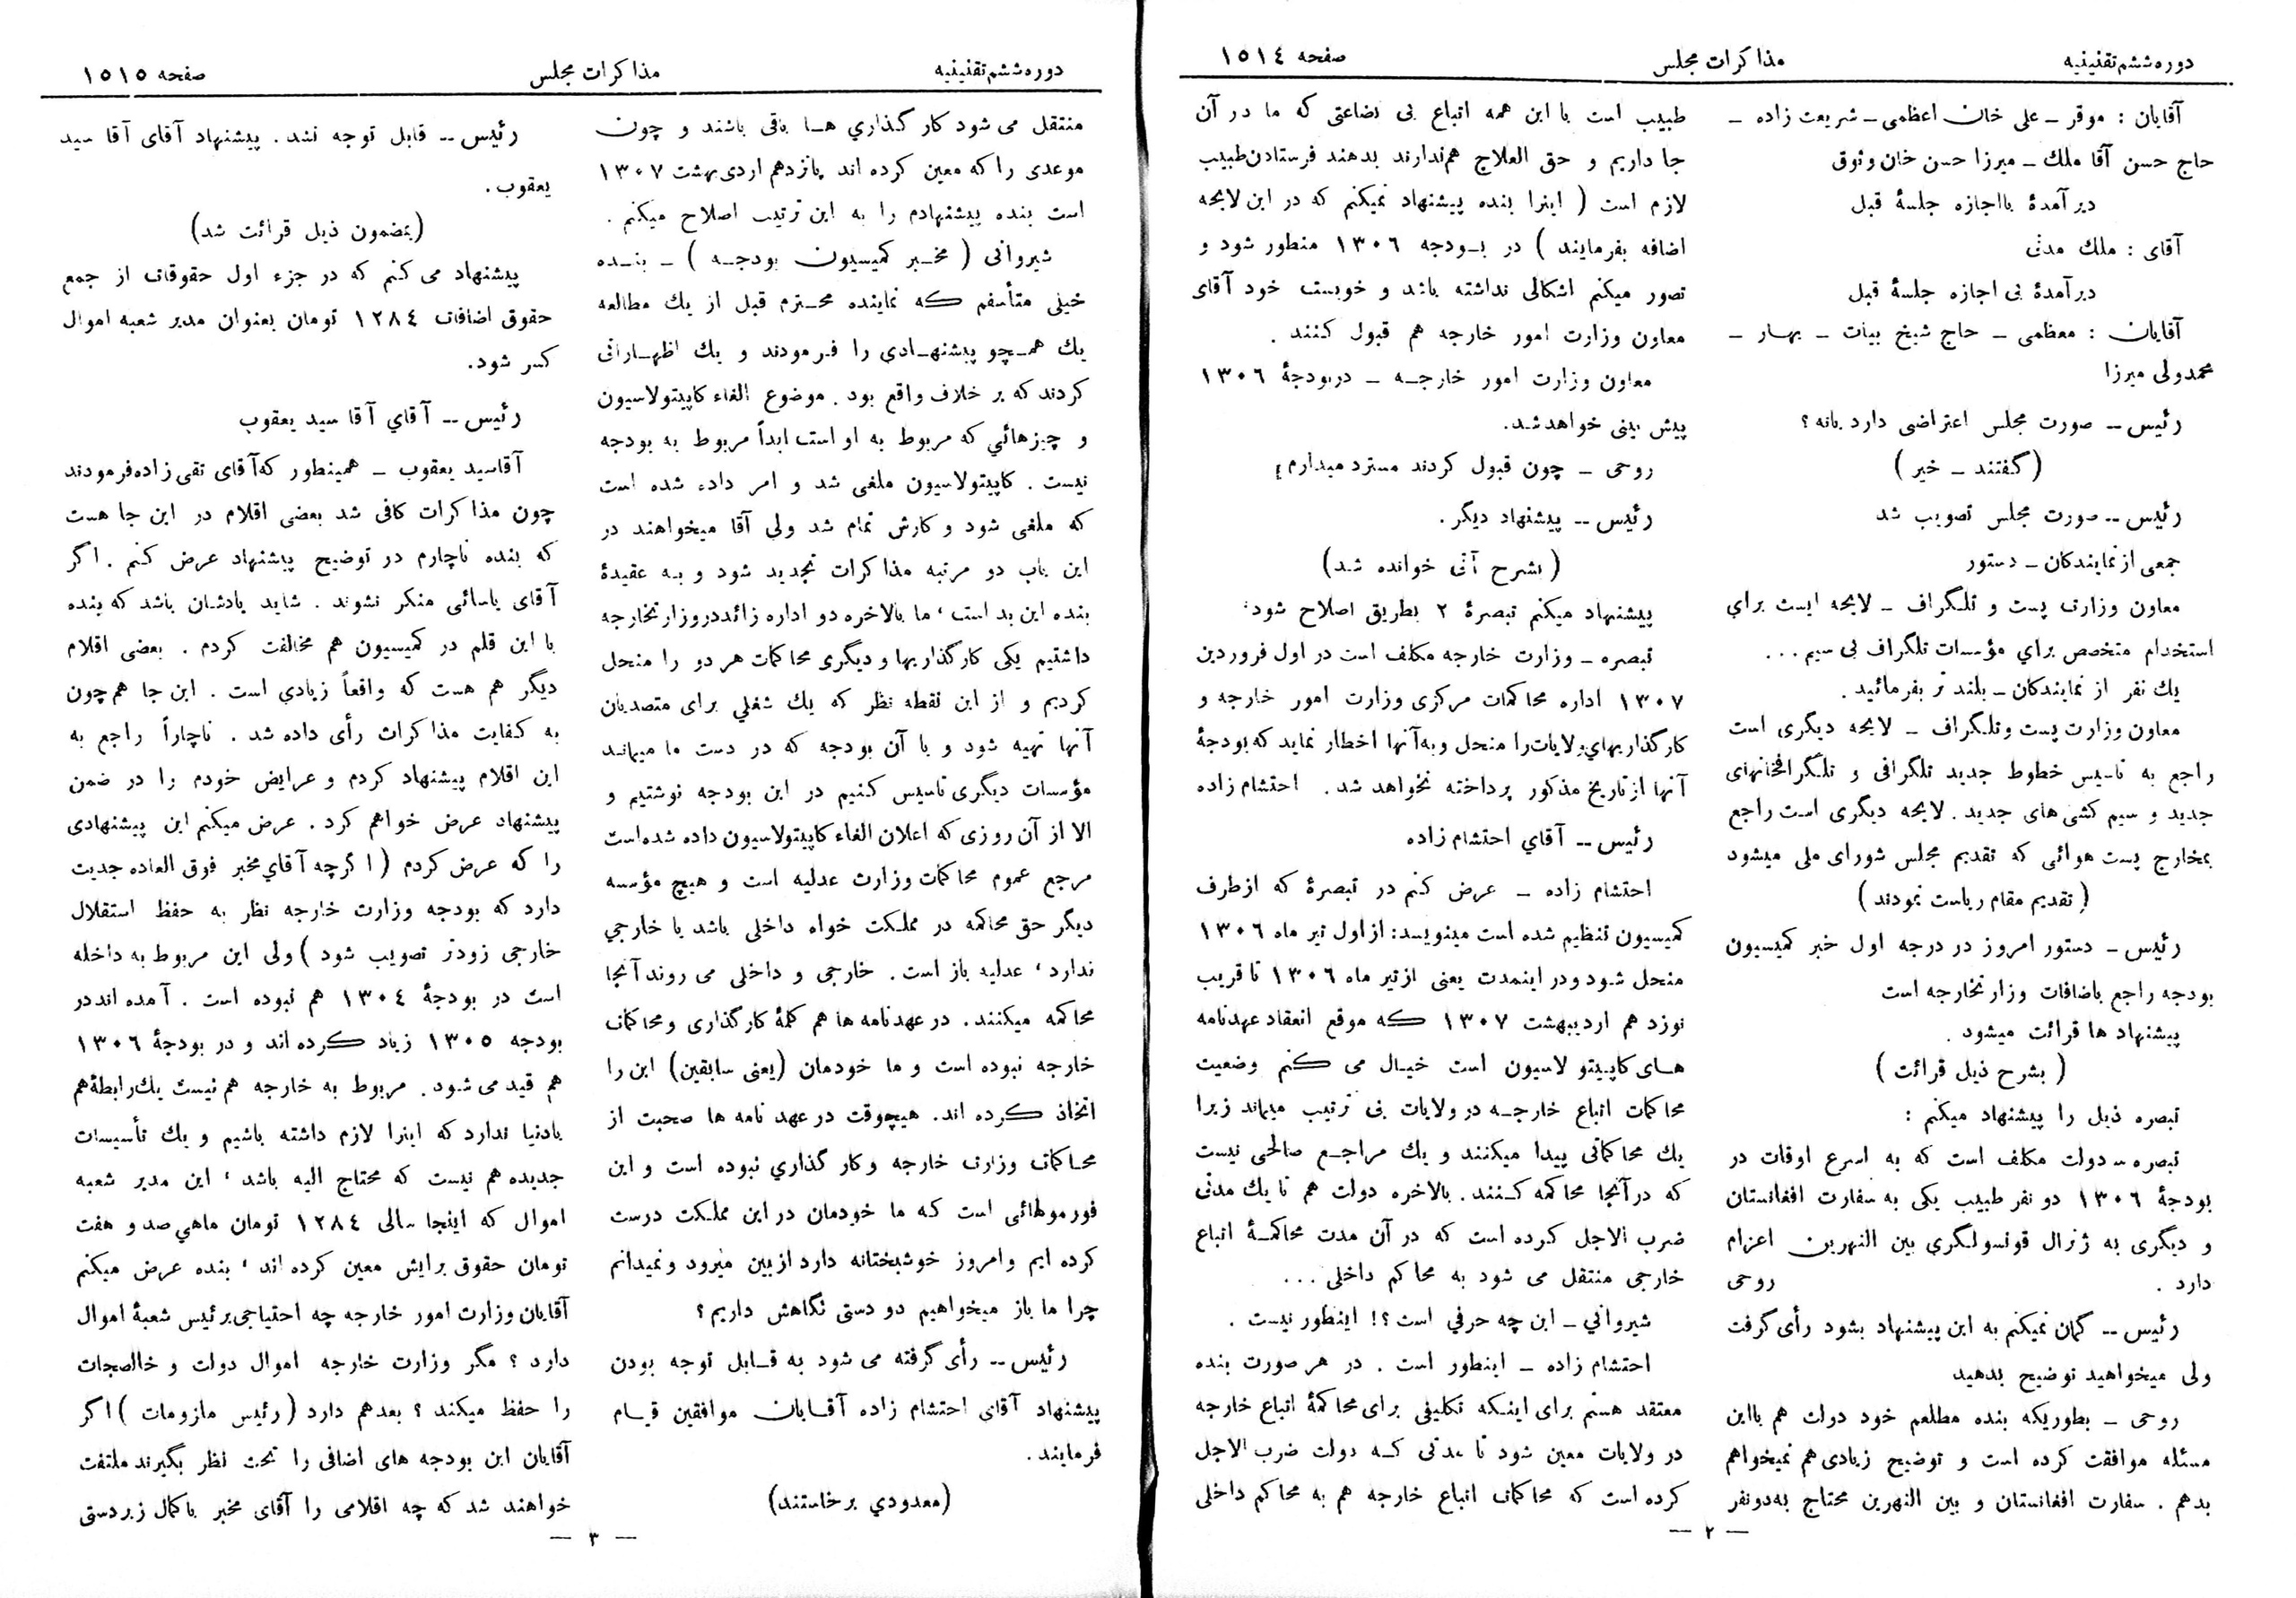 دوره ششم تقنینیه
مذاکرات مجلس
صفحه ۱۵۱٤
آقایان : موقر ــ علی خان اعظمی ــ شریعت زاده ــ
حاج حسن آقا ملك ــ میرزا حسن خان وثوق
دیر آمدهٔ بااجازه جلسهٔ قبل
آقای : ملك مدنی
دیر آمدهٔ بی اجازه جلسهٔ قبل
آقایان : معظمی ــ حاج شیخ بیات ــ بهار ــ
محمدولی میرزا
رئیس ــ صورت مجلس اعتراضی دارد یانه ؟
( گفتند ــ خیر )
رئیس ــ صورت مجلس تصویب شد
جمعی از نمایندکان ــ دستور
معاون وزارت پست و تلگراف ــ لایحه ایست برای
استخدام متخصص برای مؤسسات تلگراف بی سیم ...
یك نفر از نمایندکان ــ بلند تر بفرمائید .
معاون وزارت پست وتلگراف ــ لایحه دیگری است
راجع به تاسیس خطوط جدید تلگرافی و تلگرافخانهای
جدید و سیم کشی های جدید . لایحه دیگری است راجع
بمخارج پست هوائی که تقدیم مجلس شورای ملی میشود
( تقدیم مقام ریاست نمودند )
رئیس ــ دستور امروز در درجه اول خبر کمیسیون
بودجه راجع باضافات وزارتخارجه است
پیشنهاد ها قرائت میشود .
( بشرح ذیل قرائت )
تبصره ذیل را پیشنهاد میکنم :
تبصره ــ دولت مکلف است که به اسرع اوقات در
بودجهٔ ۱۳۰٦ دو نفر طبیب یکی به سفارت افغانستان
و دیگری به ژنرال قونسولگری بین النهرین اعزام
دارد . روحی
رئیس ــ گمان نمیکنم به این پیشنهاد بشود رأی گرفت
ولی میخواهید توضیح بدهید
روحی ــ بطوریکه بنده مطلعم خود دولت هم بااین
مسئله موافقت کرده است و توضیح زیادی هم نمیخواهم
بدهم . سفارت افغانستان و بین النهرین محتاج به دو نفر
طبیب است با این همه اتباع بی بضاعتی که ما در آن
جا داریم و حق العلاج هم ندارند بدهند فرستادن طبیب
لازم است ( اینرا بنده پیشنهاد نمیکنم که در این لایحه
اضافه بفرمایند ) در بودجه ۱۳۰٦ منظور شود و
تصور میکنم اشکالی نداشته باشد و خوبست خود آقای
معاون وزارت امور خارجه هم قبول کنند .
معاون وزارت امور خارجه ــ در بودجهٔ ۱۳۰٦
پیش بینی خواهد شد.
روحی ــ چون قبول کردند مسترد میدارم
رئیس ــ پیشنهاد دیگر .
( بشرح آتی خوانده شد )
پیشنهاد میکنم تبصرهٔ ۲ بطریق اصلاح شود
تبصره ــ وزارت خارجه مکلف است در اول فروردین
۱۳۰۷ اداره محاکمات مرکزی وزارت امور خارجه و
کارگذاریهای ولایات را منحل و به آنها اخطار نماید که بودجهٔ
آنها از تاریخ مذکور پرداخته نخواهد شد . احتشام زاده
رئیس ــ آقای احتشام زاده
احتشام زاده ــ عرض کنم در تبصرهٔ که از طرف
کمیسیون تنظیم شده است مینویسد: از اول تیر ماه ۱۳۰٦
منحل شود و در اینمدت یعنی از تیر ماه ۱۳۰٦ تا قریب
نوزد هم اردیبهشت ۱۳۰۷ که موقع انعقاد عهدنامه
های کاپیتو لاسیون است خیال می کنم وضعیت
محاکمات اتباع خارجه در ولایات بی ترتیب میماند زیرا
یك محاکماتی پیدا میکنند و یك مراجع صالحی نیست
که در آنجا محاکمه کنند . بالاخره دولت هم تا یك مدتی
ضرب الاجل کرده است که در آن مدت محاکمهٔ اتباع
خارجی منتقل می شود به محاکم داخلی ...
شیروانی ــ این چه حرفی است ؟! اینطور نیست .
احتشام زاده ــ اینطور است . در هر صورت بنده
معتقد هستم برای اینکه تکلیفی برای محاکمهٔ اتباع خارجه
در ولایات معین شود تا مدتی که دولت ضرب الاجل
کرده است که محاکمات اتباع خارجه هم به محاکم داخلی
ــ ۲ ــ
دوره ششم تقنینیه
مذاکرات مجلس
صفحه ۱۵۱۵
منتقل می شود کار گذاری ها باقی باشند و چون
موعدی را که معین کرده اند پانزدهم اردی بهشت ۱۳۰۷
است بنده پیشنهادم را به این ترتیب اصلاح میکنم .
شیروانی ( مخبر کمیسیون بودجه ) ــ بنده
خیلی متأسفم که نماینده محترم قبل از یك مطالعه
یك همچو پیشنهادی را فرمودند و یك اظهاراتی
کردند که بر خلاف واقع بود . موضوع الغاء کاپیتولاسیون
و چیزهائی که مربوط به او است ابداً مربوط به بودجه
نیست . کاپیتولاسیون ملغی شد و امر داده شده است
که ملغی شود و کارش تمام شد ولی آقا میخواهند در
این باب دو مرتبه مذاکرات تجدید شود و به عقیدهٔ
بنده این بد است ، ما بالاخره دو اداره زائد در وزارتخارجه
داشتیم یکی کارگذاریها و دیگری محاکمات هر دو را منحل
کردیم و از این نقطه نظر که یك شغلی برای متصدیان
آنها تهیه شود و با آن بودجه که در دست ما میماند
مؤسسات دیگری تاسیس کنیم در این بودجه نوشتیم و
الا از آن روزی که اعلان الغاء کاپیتولاسیون داده شده است
مرجع عموم محاکمات وزارت عدلیه است و هیچ مؤسسه
دیگر حق محاکمه در مملکت خواه داخلی باشد یا خارجی
ندارد ، عدلیه باز است . خارجی و داخلی می روند آنجا
محاکمه میکنند . در عهدنامه ها هم کلمهٔ کارگذاری و محاکمات
خارجه نبوده است و ما خودمان (یعنی سابقین) این را
اتخاذ کرده اند . هیچوقت در عهد نامه ها صحبت از
محاکمات وزارت خارجه و کار گذاری نبوده است و این
فورمولهائی است که ما خودمان در این مملکت درست
کرده ایم و امروز خوشبختانه دارد از بین میرود و نمیدانم
چرا ما باز میخواهیم دو دستی نگاهش داریم ؟
رئیس ــ رأی گرفته می شود به قابل توجه بودن
پیشنهاد آقای احتشام زاده آقایان موافقین قیام
فرمایند .
(معدودی برخاستند)
رئیس ــ قابل توجه نشد . پیشنهاد آقای آقا سید
یعقوب .
(بمضمون ذیل قرائت شد)
پیشنهاد می کنم که در جزء اول حقوقات از جمع
حقوق اضافات ۱۲۸٤ تومان بعنوان مدیر شعبه اموال
کسر شود.
رئیس ــ آقای آقا سید یعقوب
آقاسید یعقوب ــ همینطور که آقای تقی زاده فرمودند
چون مذاکرات کافی شد بعضی اقلام در این جا هست
که بنده ناچارم در توضیح پیشنهاد عرض کنم . اگر
آقای یاسائی منکر نشوند . شاید یادشان باشد که بنده
با این قلم در کمیسیون هم مخالفت کردم . بعضی اقلام
دیگر هم هست که واقعاً زیادی است . این جا هم چون
به کفایت مذاکرات رأی داده شد . ناچاراً راجع به
این اقلام پیشنهاد کردم و عرایض خودم را در ضمن
پیشنهاد عرض خواهم کرد . عرض میکنم این پیشنهادی
را که عرض کردم ( اگرچه آقای مخبر فوق العاده جدیت
دارد که بودجه وزارت خارجه نظر به حفظ استقلال
خارجی زودتر تصویب شود ) ولی این مربوط به داخله
است در بودجهٔ ۱۳۰٤ هم نبوده است . آمده اند در
بودجه ۱۳۰۵ زیاد کرده اند و در بودجهٔ ۱۳۰٦
هم قید می شود . مربوط به خارجه هم نیست یك رابطهٔ هم
بادنیا ندارد که اینرا لازم داشته باشیم و یك تأسیسات
جدیده هم نیست که محتاج الیه باشد ، این مدیر شعبه
اموال که اینجا سالی ۱۲۸٤ تومان ماهی صد و هفت
تومان حقوق برایش معین کرده اند ، بنده عرض میکنم
آقایان وزارت امور خارجه چه احتیاجی برئیس شعبهٔ اموال
دارد ؟ مگر وزارت خارجه اموال دولت و خالصجات
را حفظ میکند ؟ بعد هم دارد ( رئیس ملزومات ) اگر
آقایان این بودجه های اضافی را تحت نظر بگیرند ملتفت
خواهند شد که چه اقلامی را آقای مخبر باکمال زبردستی
ــ ۳ ــ